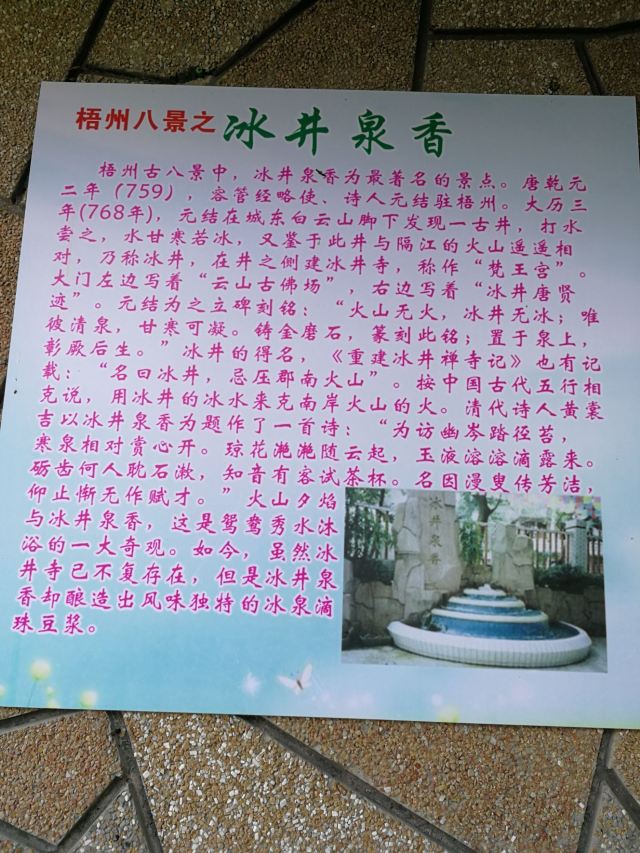 梧州八景之冰井泉香
梧州古八景中，冰井泉香为最著名的景点。唐乾元
二年（759），容管经略使、诗人元结驻梧州。大历三
年(768年)，元结在城东白云山脚下发现一古井，打水
尝之，水甘寒若冰，又鉴于此井与隔江的火山遥遥相
对，乃称冰井，在井之侧建冰井寺，称作“梵王宫”。
大门左边写着“云山古佛场”，右边写着“冰井唐贤
迹”。元结为之立碑刻铭：“火山无火，冰井无冰；唯
彼清泉，甘寒可凝。铸金磨石，篆刻此铭；置于泉上，
彰厥后生。”冰井的得名，《重建冰井禅寺记》也有记
载：“名曰冰井，忌压郡南火山”。按中国古代五行相
克说，用冰井的冰水来克南岸火山的火。清代诗人黄裳
吉以冰井泉香为题作了一首诗：“为访幽岑踏径苔，
寒泉相对赏心开。琼花滟滟随云起，玉液溶溶滴露来。
砺齿何人耽石漱，知音有客试茶杯。名因漫叟传芳洁，
仰止惭无作赋才。”火山夕焰
与冰井泉香，这是鸳鸯秀水沐
浴的一大奇观。如今，虽然冰
井寺已不复存在，但是冰井泉
香却酿造出风味独特的冰泉滴
珠豆浆。
冰井泉香